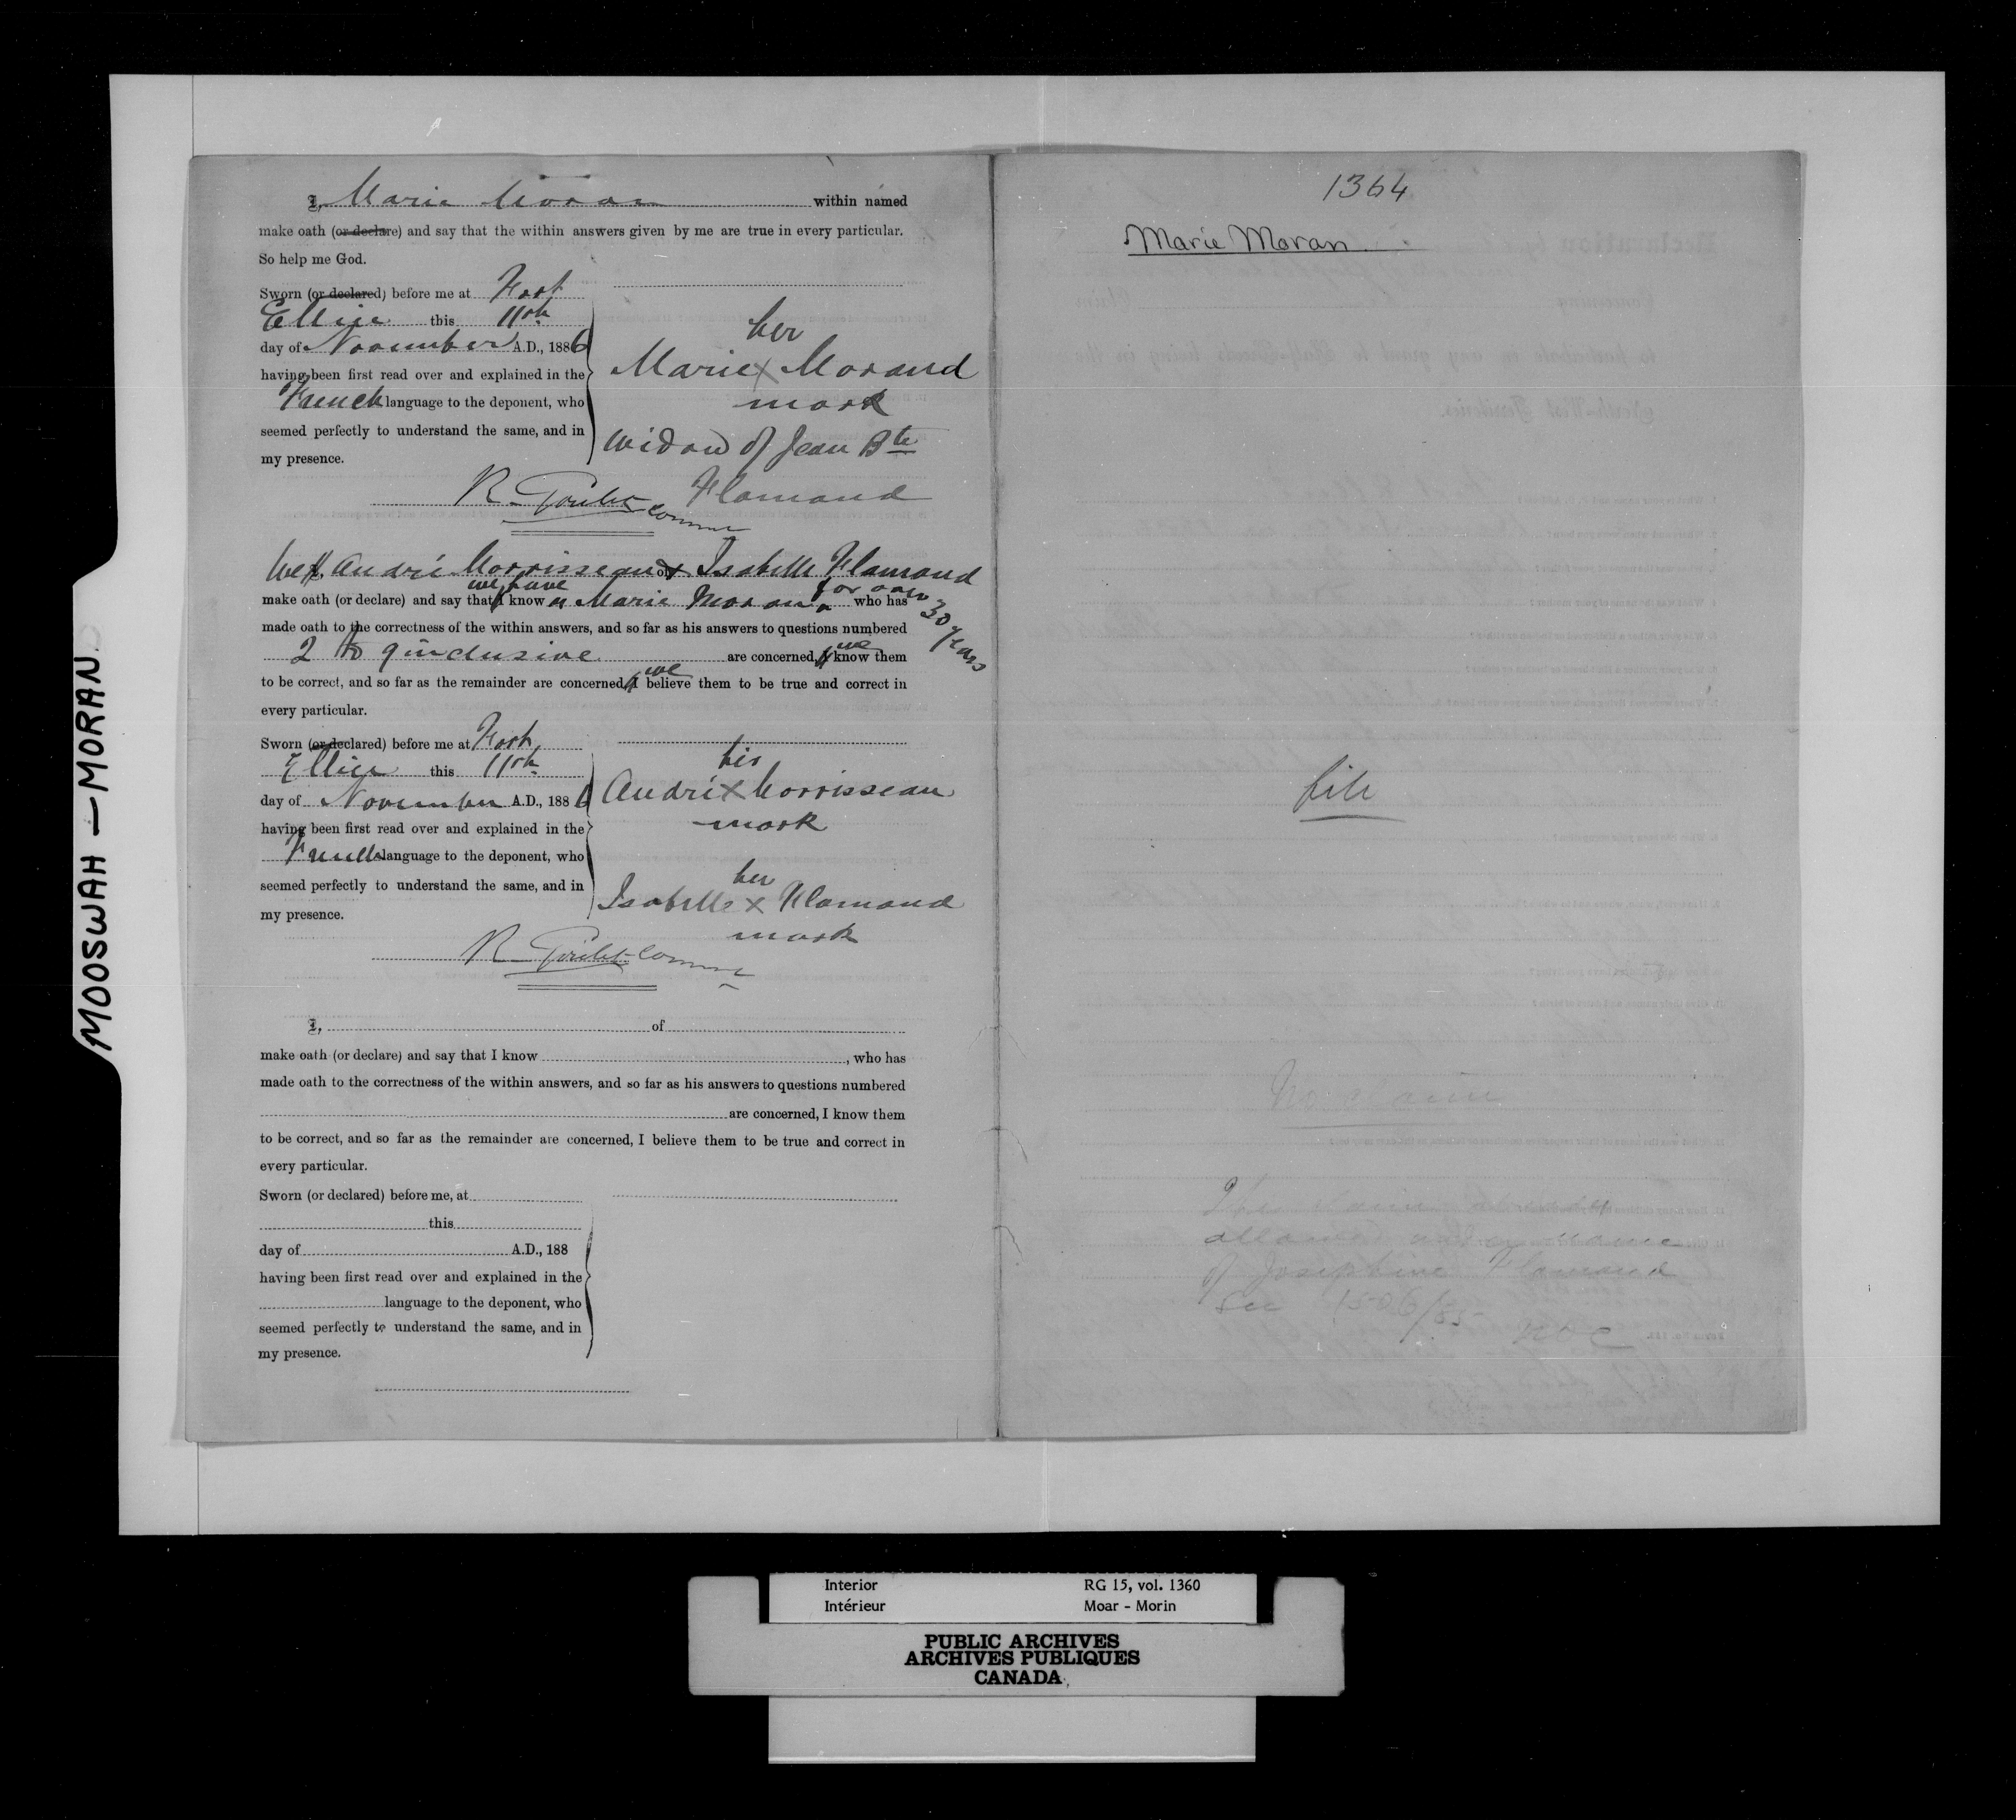 I, Marie Moran within named
make oath (or declare) and say that the within answers given by me are true in every particular.
So help me God.
Sworn (or declared) before me at Fort
Ellice this 11th
day of November A.D., 1886
having been first read over and explained in the
French language to the deponent, who
seemed perfectly to understand the same, and in
my presence.
her
Marie X Morand
mark
widow of Jean Bte
Flamand
R. Goulet Commr
We, André Morrisseau & Isabelle Flamand
make oath (or declare) and say that we have know n Marie Moran for over 30 years who has
made oath to the correctness of the within answers, and so far as his answers to questions numbered
2 to 9 inclusive are concerned, we know them
to be correct, and so far as the remainder are concerned, we believe them to be true and correct in
every particular.
Sworn (or declared) before me at Fort
Ellice this 11th
day of November A.D., 1886
having been first read over and explained in the
French language to the deponent, who
seemed perfectly to understand the same, and in
my presence.
his
André X Morrisseau
mark
her
Isabelle X Flamand
mark
R. Goulet Commr
I, of
make oath (or declare) and say that I know , who has
made oath to the correctness of the within answers, and so far as his answers to questions numbered
are concerned, I know them
to be correct, and so far as the remainder are concerned, I believe them to be true and correct in
every particular.
Sworn (or declared) before me, at
this
day of A.D., 188
having been first read over and explained in the
language to the deponent, who
seemed perfectly to understand the same, and in
my presence.
1364
Marie Moran
file
No claim
allowed under name
of Josephine Flamand
See 1506/85
NOC
MOOSWAH — MORAN
Interior RG 15, vol. 1360
Intérieur Moar - Morin
PUBLIC ARCHIVES
ARCHIVES PUBLIQUES
CANADA